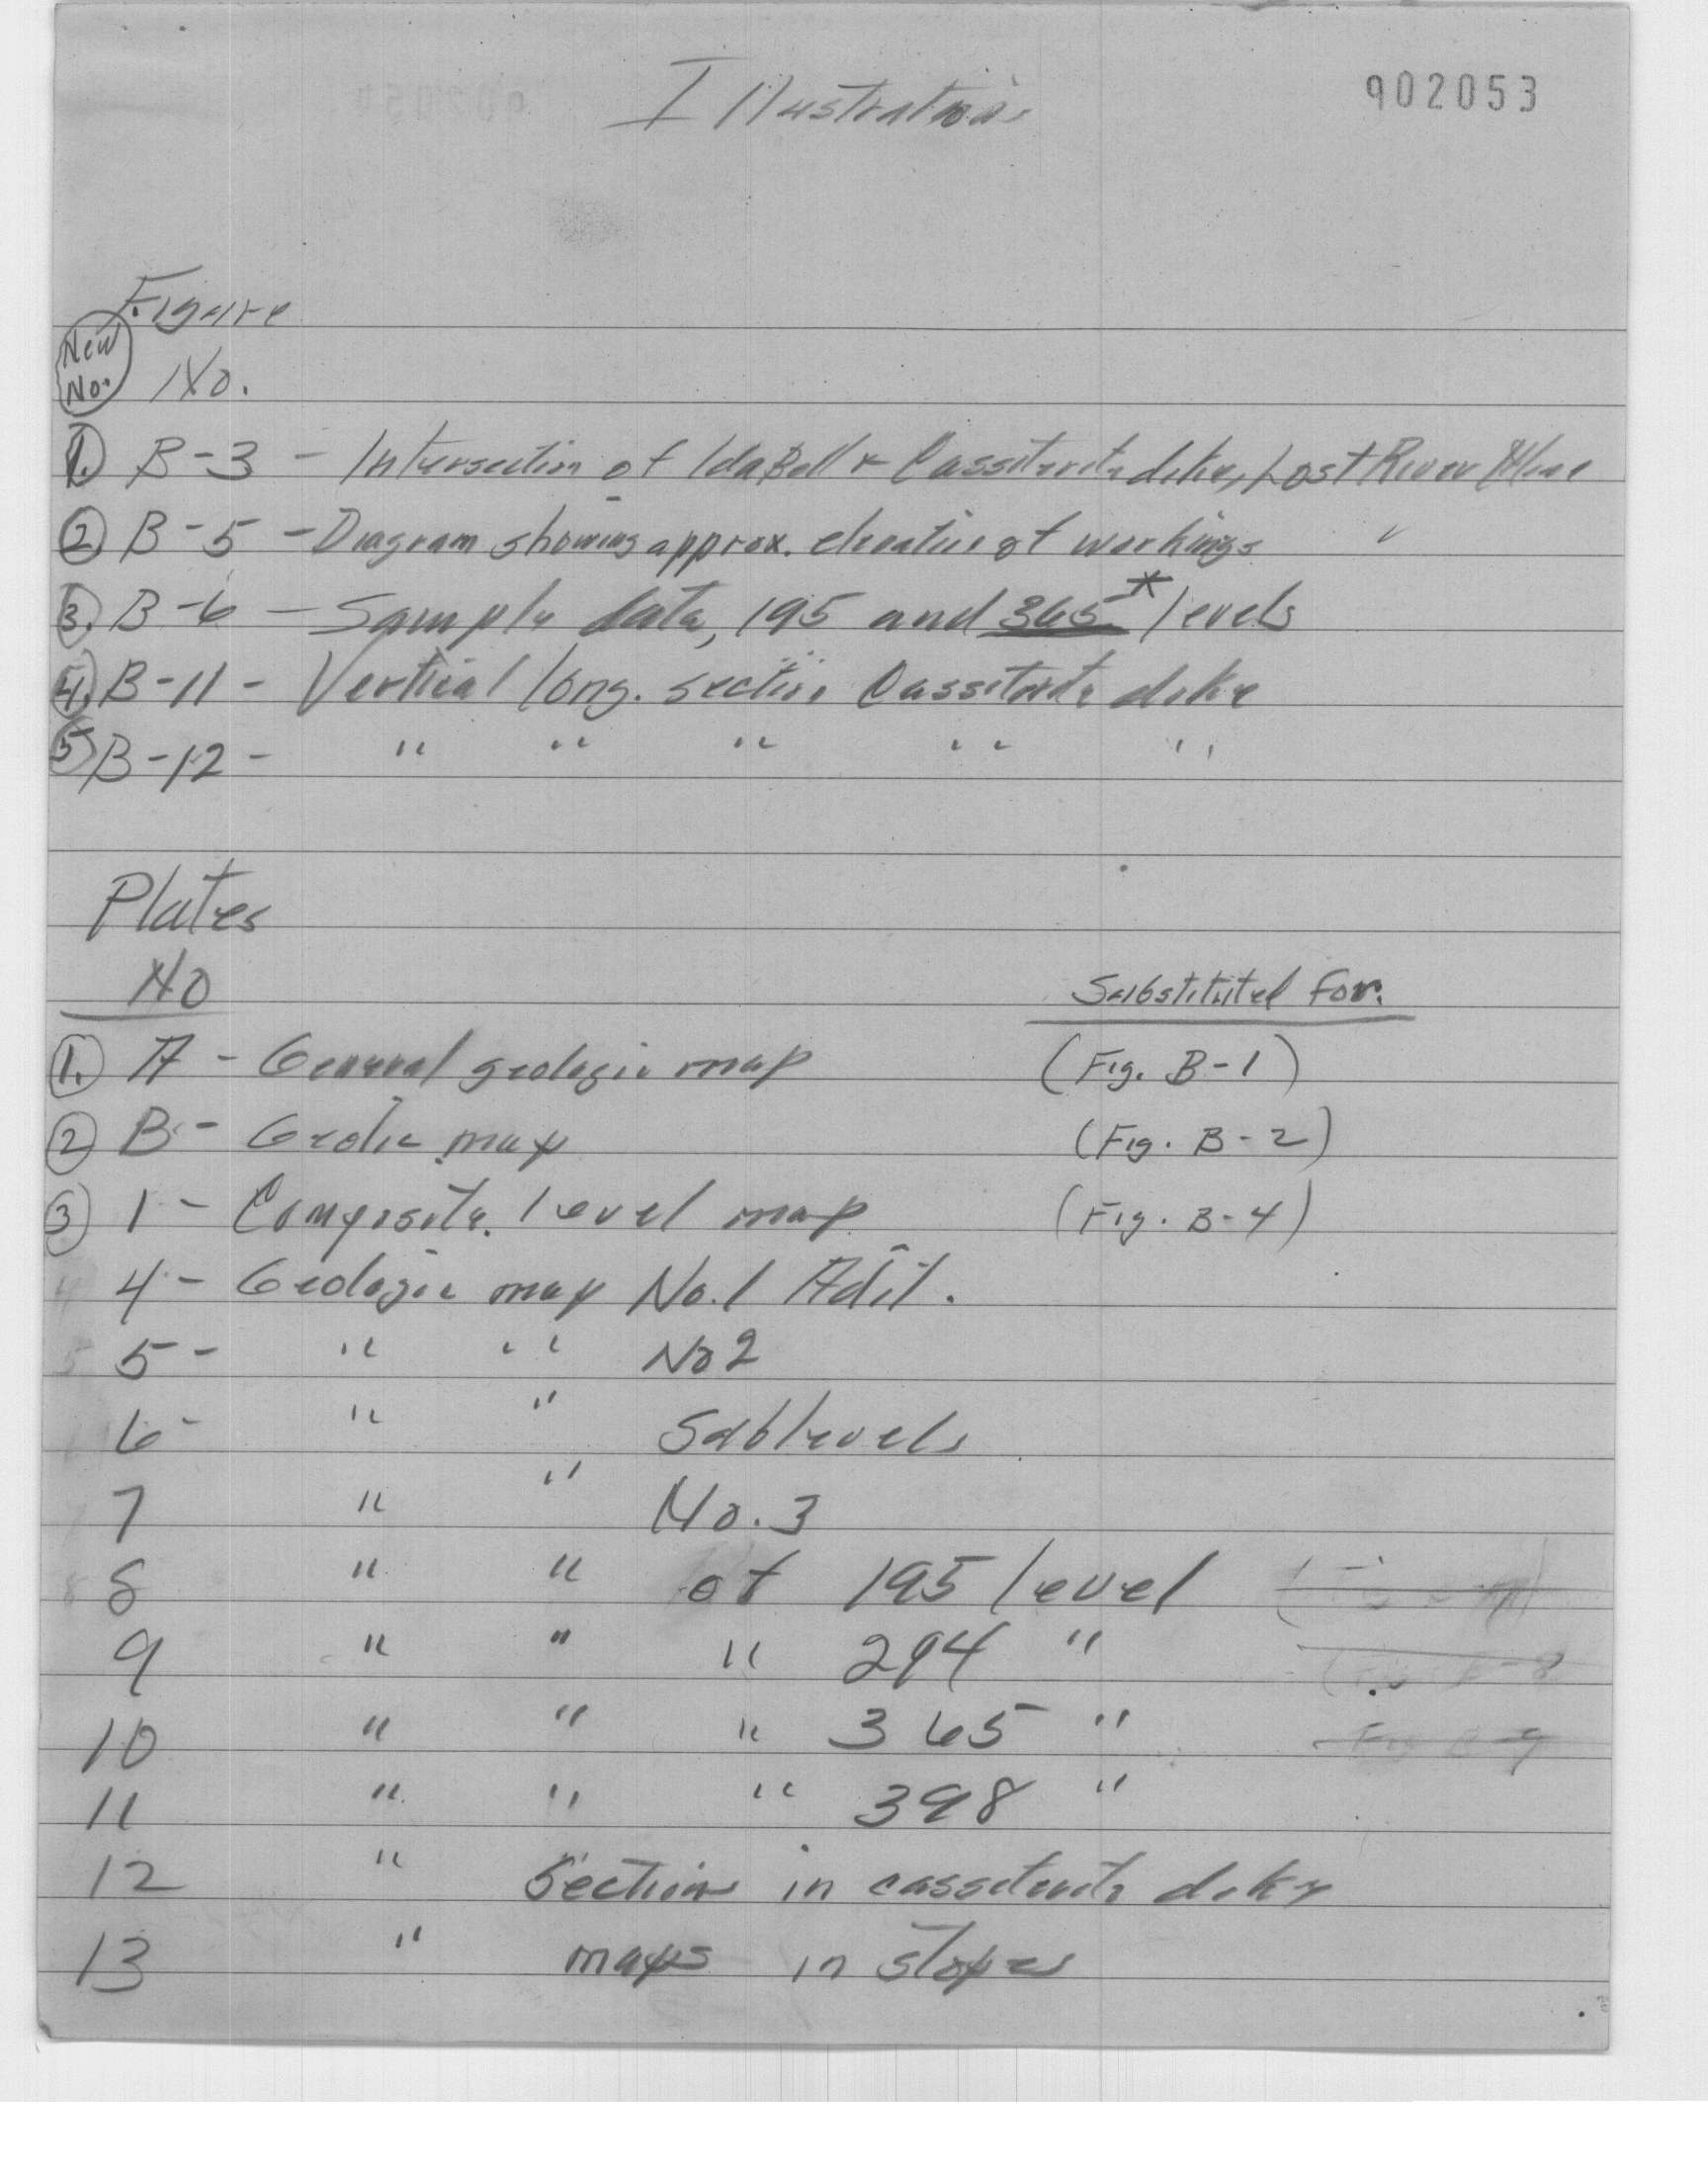 Illustrations
902053
Figure
New No.
No.
1. B-3 - Intersection of Ida Bell & Cassiterite dike, Lost River Mine
2 B-5 - Diagram showing approx. elevation of workings "
3. B-6 - Sample data, 195 and 365* levels
4. B-11 - Vertical long. section Cassiterite dike
5 B-12 - " " " " "
Plates
No
Substituted for.
1. A - General geologic map (Fig. B-1)
2 B - Geolic map (Fig. B-2)
3 1 - Composite level map (Fig. B-4)
4 4 - Geologic map No. 1 Adit.
5 5 - " " No 2
6 - " " Sublevels
7 " " No. 3
8 8 " " of 195 level
9 " " " 294 "
10 " " " 365 "
11 " " " 398 "
12 " Section in cassiterite dike
13 " maps in stopes